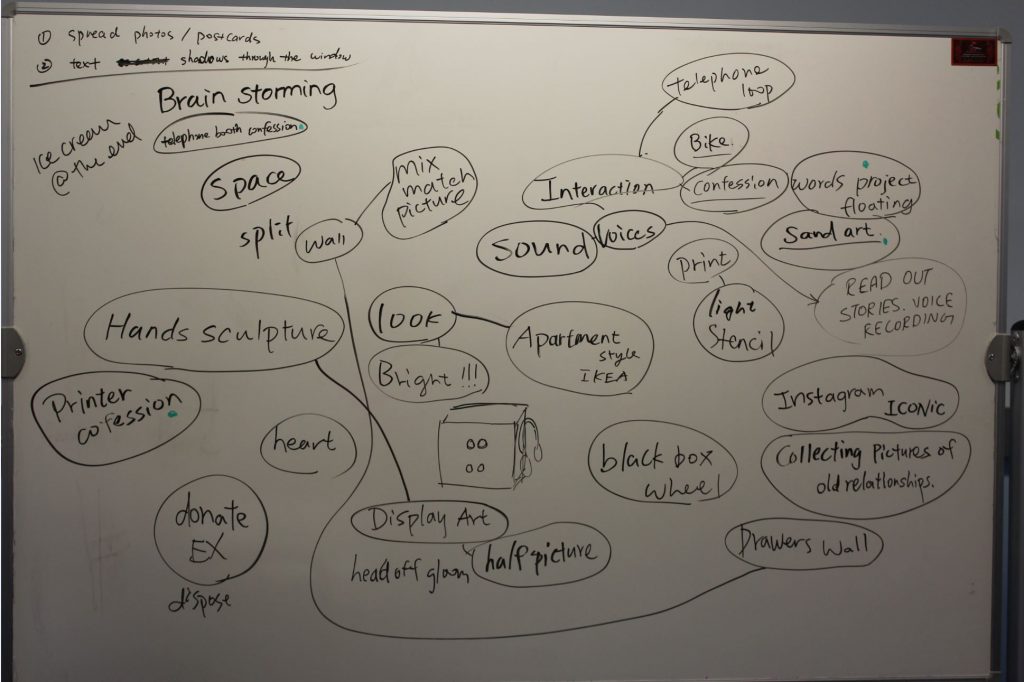 ① spread photos / postcards
② text shadows through the window
Brain storming
telephone booth confession.
Ice cream
@ the end
Space
split
wall
mix
match
picture
telephone
loop
Bike.
Interaction
Confession
words project
floating
Sand art.
Sound
Voices
print
light
Stencil
READ OUT
STORIES. VOICE
RECORDING
Hands sculpture
look
Bright !!!
Apartment
style
IKEA
Printer
cofession
heart
black box
wheel
Instagram
ICONIC
Collecting Pictures of
old relationships.
donate
EX
dispose
Display Art
half picture
head off
Drawers wall